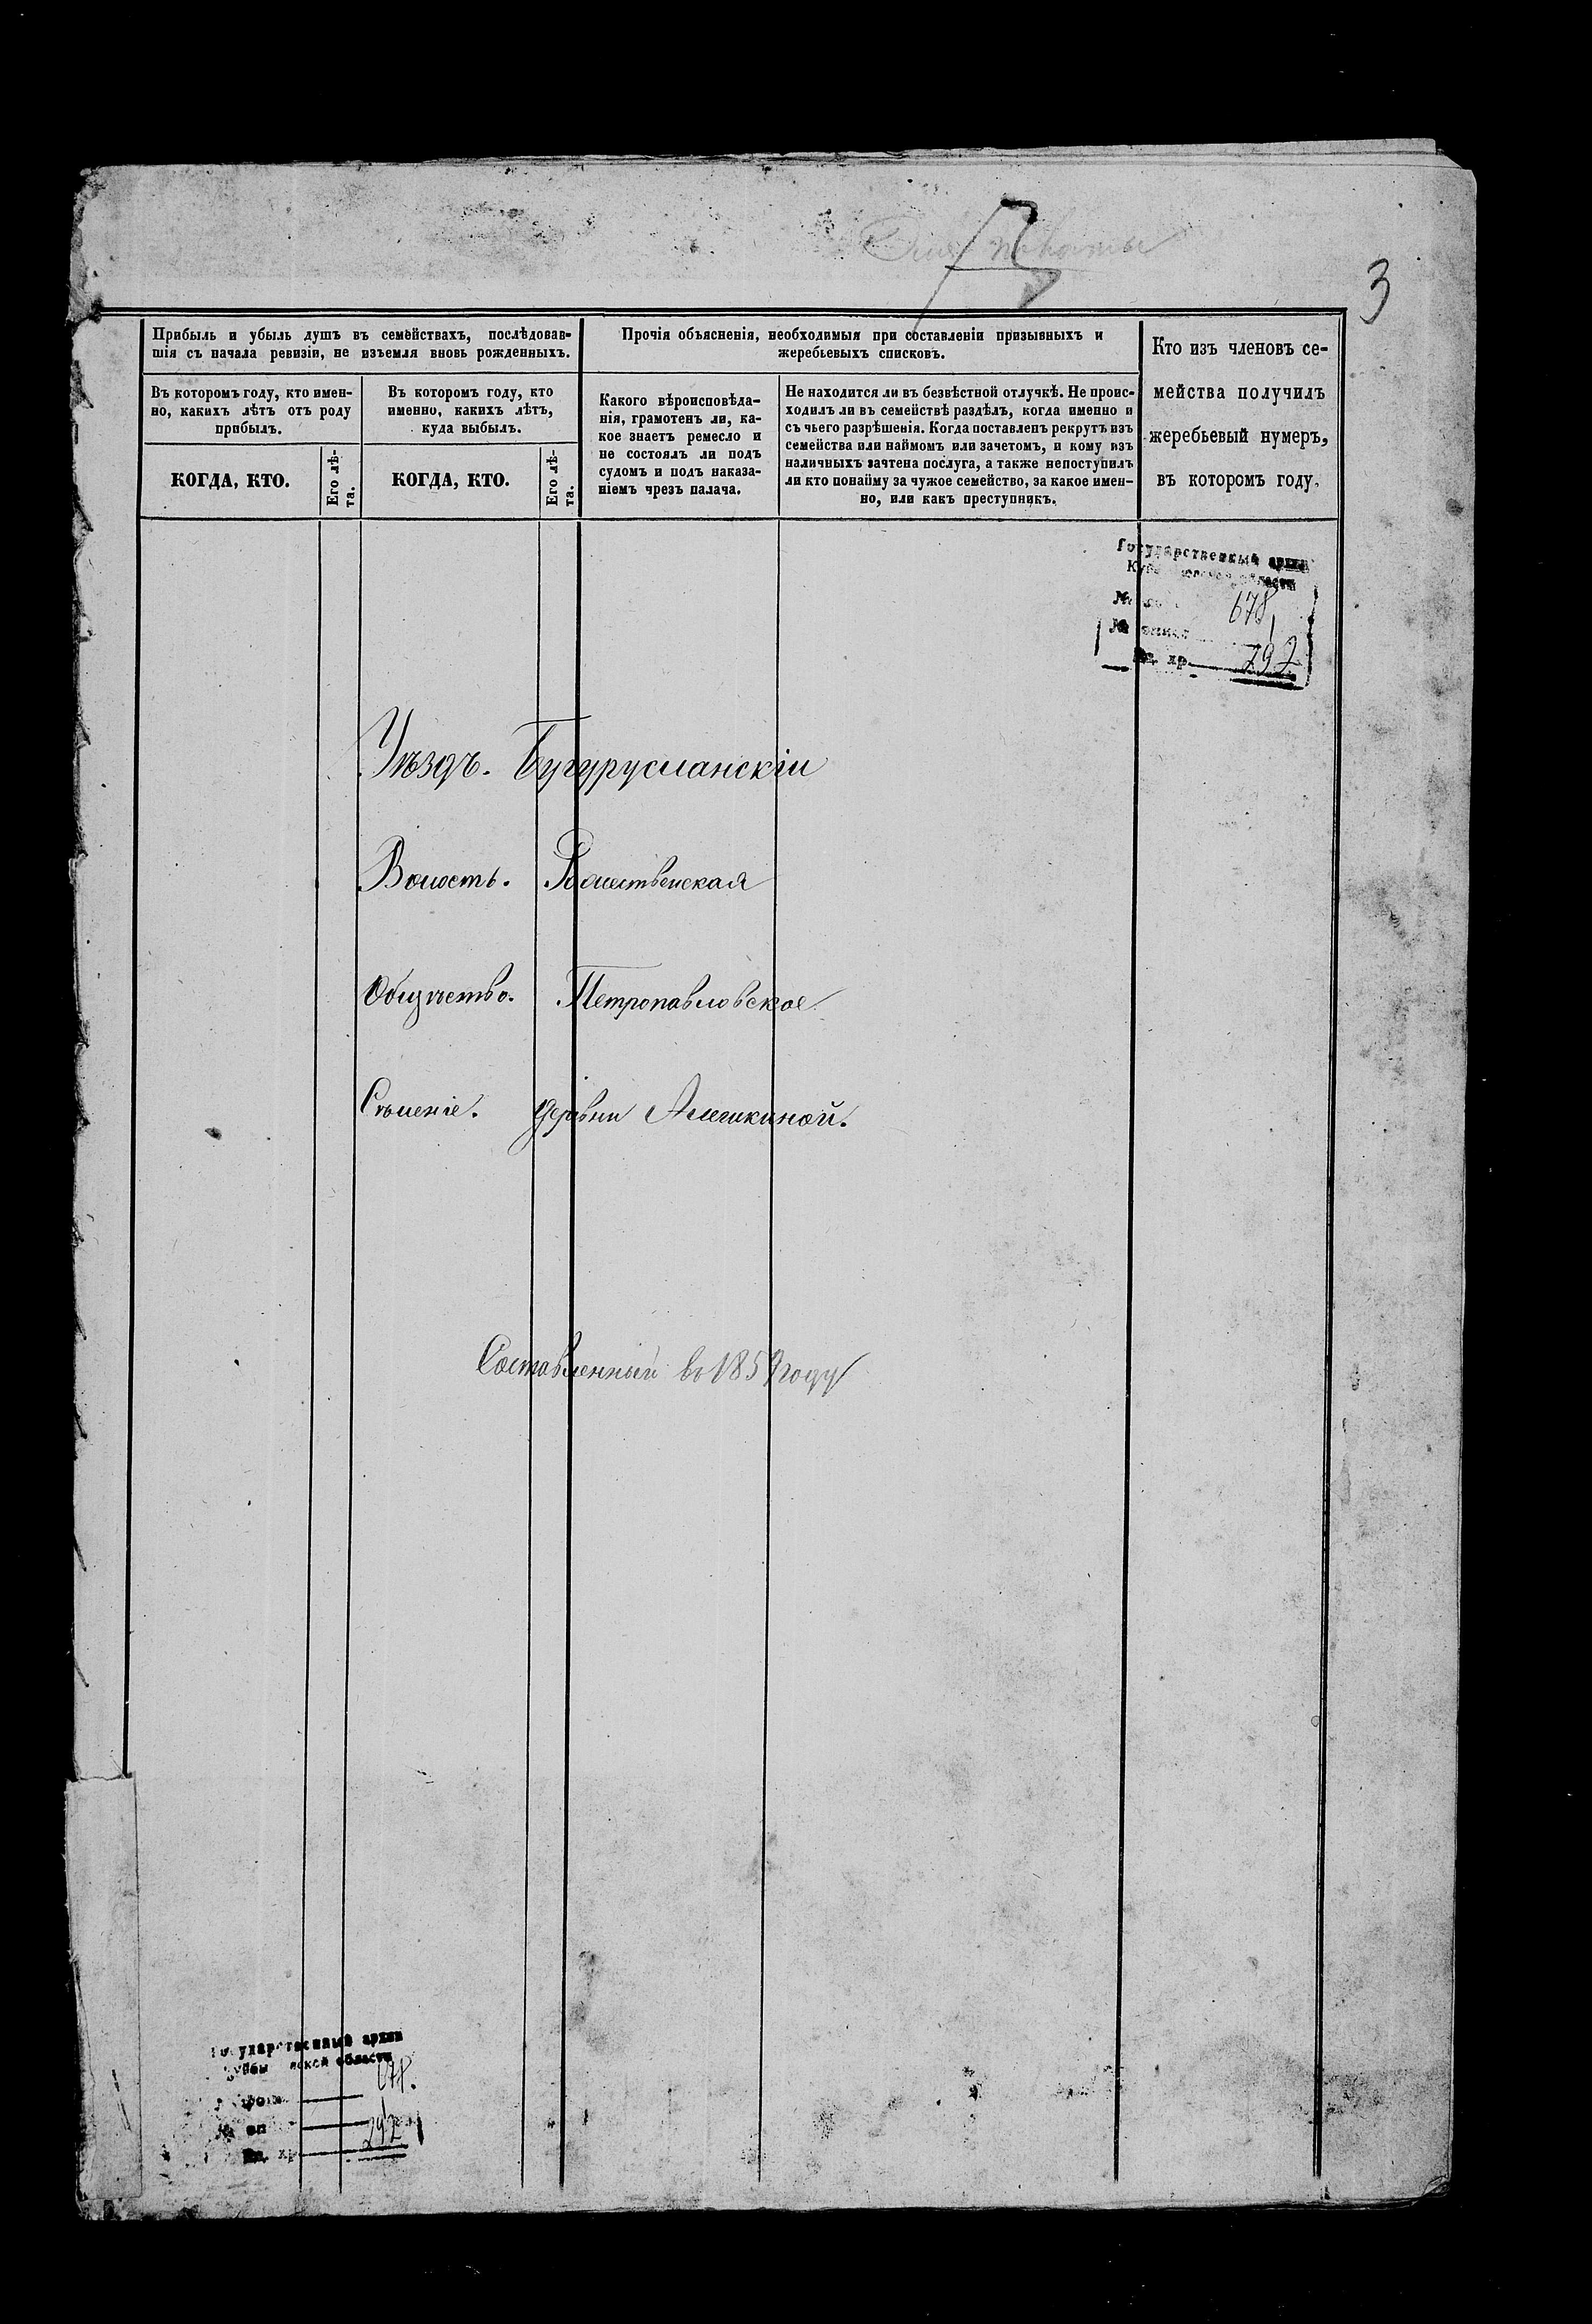 3
Прибыль и убыль душъ въ семействахъ, послѣдовав-
шія съ начала ревизіи, не изъемля вновь рожденныхъ.
Въ которомъ году, кто имен-
но, какихъ лѣтъ отъ роду
прибылъ.
КОГДА, КТО.
Его лѣ-
та.
Въ которомъ году, кто
именно, какихъ лѣтъ,
куда выбылъ.
КОГДА, КТО.
Его лѣ-
та.
Прочія объясненія, необходимыя при составленіи призывныхъ и
жеребьевыхъ списковъ.
Какого вѣроисповѣда-
нія, грамотенъ ли, ка-
кое знаетъ ремесло и
не состоялъ ли подъ
судомъ и подъ наказа-
ніемъ чрезъ палача.
Не находится ли въ безвѣстной отлучкѣ. Не проис-
ходилъ ли въ семействѣ раздѣлъ, когда именно и
съ чьего разрѣшенія. Когда поставленъ рекрутъ изъ
семейства или наймомъ или зачетомъ, и кому изъ
наличныхъ зачтена послуга, а также непоступилъ
ли кто понайму за чужое семейство, за какое имен-
но, или какъ преступникъ.
Кто изъ членовъ се-
мейства получилъ
жеребьевый нумеръ,
въ которомъ году.
Государственный архив
области
678
1
Ед. хр. 292
Уѣздъ. Бугурусланскій
Волость.
Общество. Петропавловское
Селеніе. Деревни Алешкиной.
Составленный въ 185 году
Государственный архив
области
678.
1
Ед. хр. 292